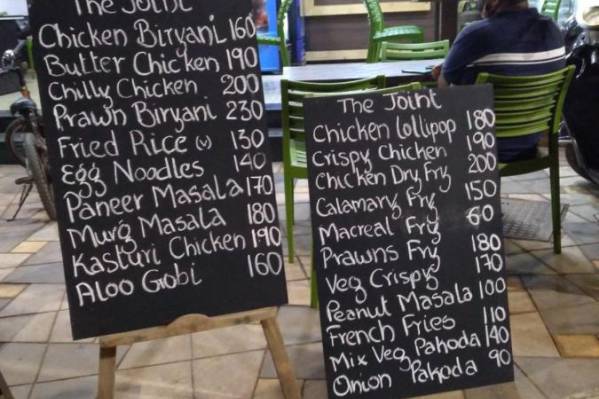 The Joint
Chicken Biryani 160
Butter Chicken 190
Chilly Chicken 200
Prawn Biryani 230
Fried Rice (v) 130
Egg Noodles 140
Paneer Masala 170
Murg Masala 180
Kasturi Chicken 190
Aloo Gobi 160
The Joint
Chicken Lollipop 180
Crispy Chicken 190
Chicken Dry Fry 200
Calamary Fry 150
Macreal Fry 60
Prawns Fry 180
Veg Crispy 170
Peanut Masala 100
French Fries 110
Mix Veg Pakoda 140
Onion Pakoda 90